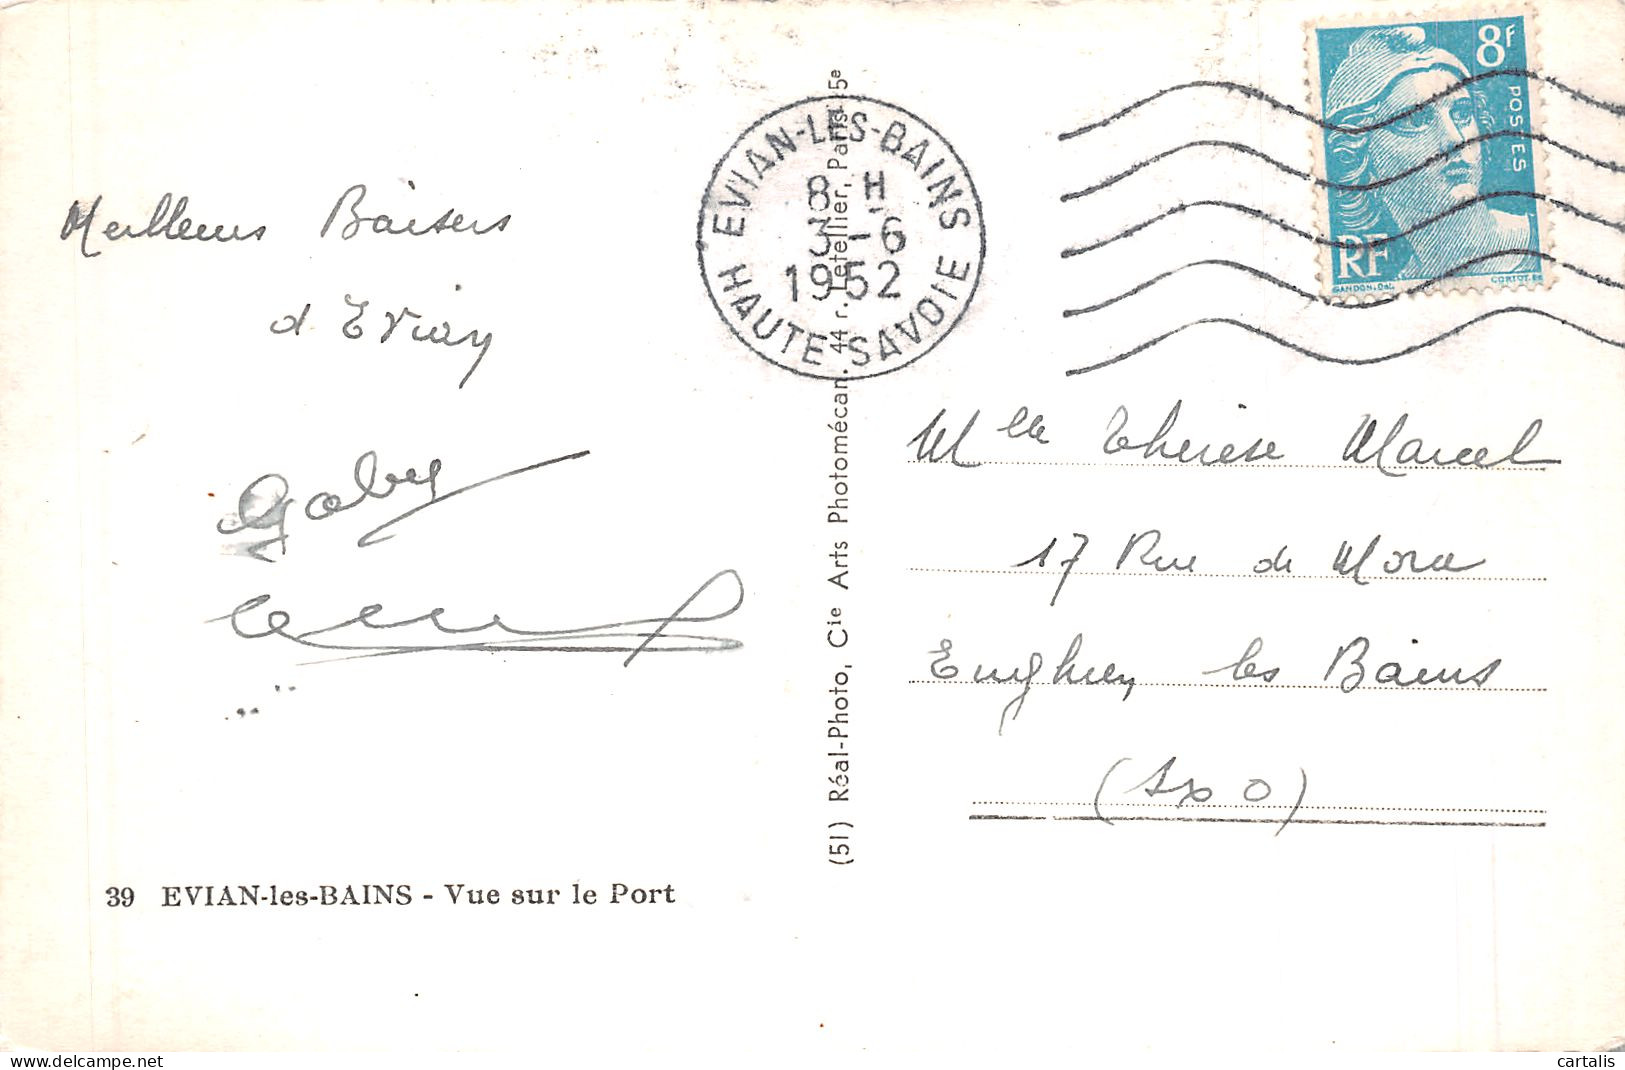 Meilleurs Baisers
d'Evian
Gaby
39 EVIAN-les-BAINS - Vue sur le Port
(51) Réal-Photo, Cie Arts Photomécan. 44 r. Letellier, Paris-15e
EVIAN-LES-BAINS
8 H
3-6
1952
HAUTE-SAVOIE
8f
POSTES
RF
GANDON.Del.
CORTOT.
Mlle Thérèse Marcel
17 Rue de Mora
Enghien les Bains
(S x O)
delcampe.net
cartalis